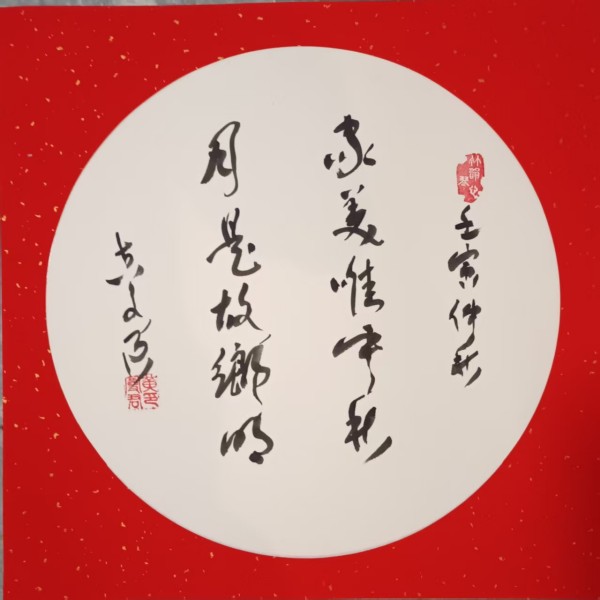 壬寅仲秋
美唯中秋
月是故鄉明